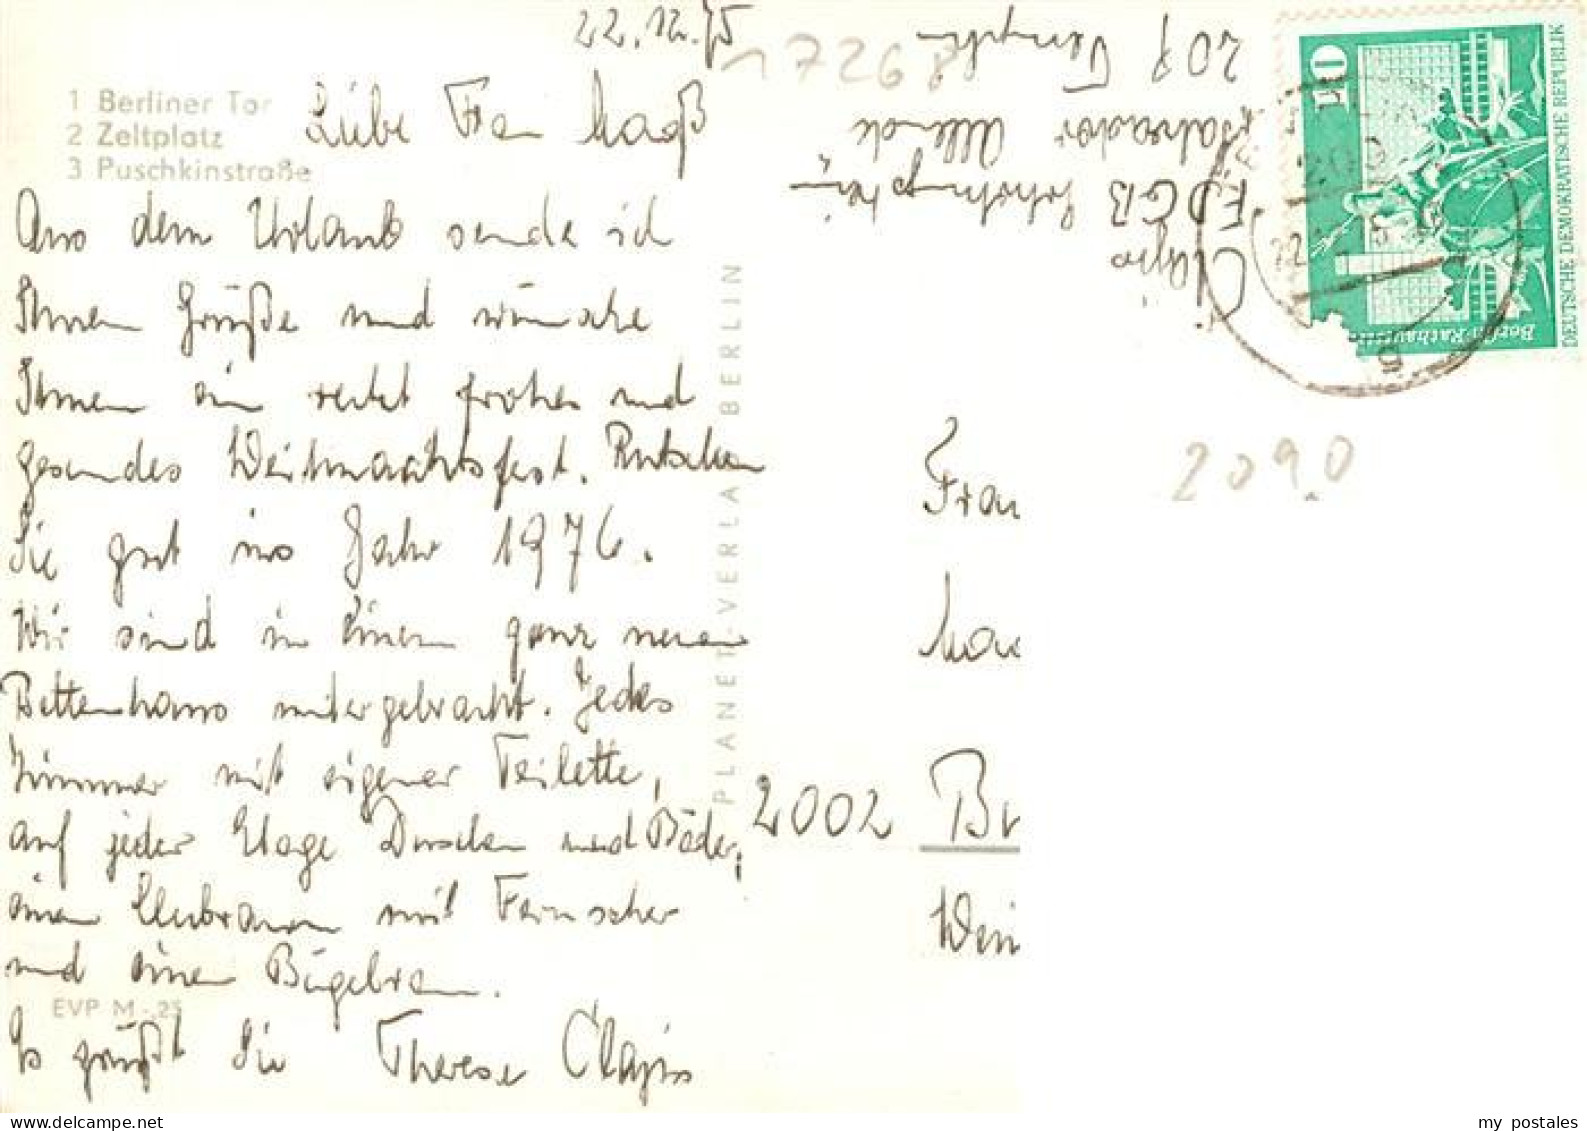 22.12.75
1 Berliner Tor
2 Zeltplatz
3 Puschkinstraße
Liebe Frau Maaß
Aus dem Urlaub sende ich
Ihnen Grüße und wünsche
Ihnen ein recht frohes und
gesundes Weihnachtsfest. Rutschen
Sie gut ins Jahr 1976.
Wir sind in einem ganz neuen
Bettenhaus untergebracht. Jedes
Zimmer mit eigener Toilette,
auf jeder Etage Duschen und Bäder,
einen Clubraum mit Fernseher
und einen Bügelraum.
EVP M -,25
Es grüßt Sie Therese Clajus
PLANET-VERLAG BERLIN
17268
Clajus
FDGB Erholungsheim
"Salvador Allende"
209 Templin
10
Berlin-Rathausstraße
DEUTSCHE DEMOKRATISCHE REPUBLIK
2090
Frau
Maa
2002 Br
Wein
my postales